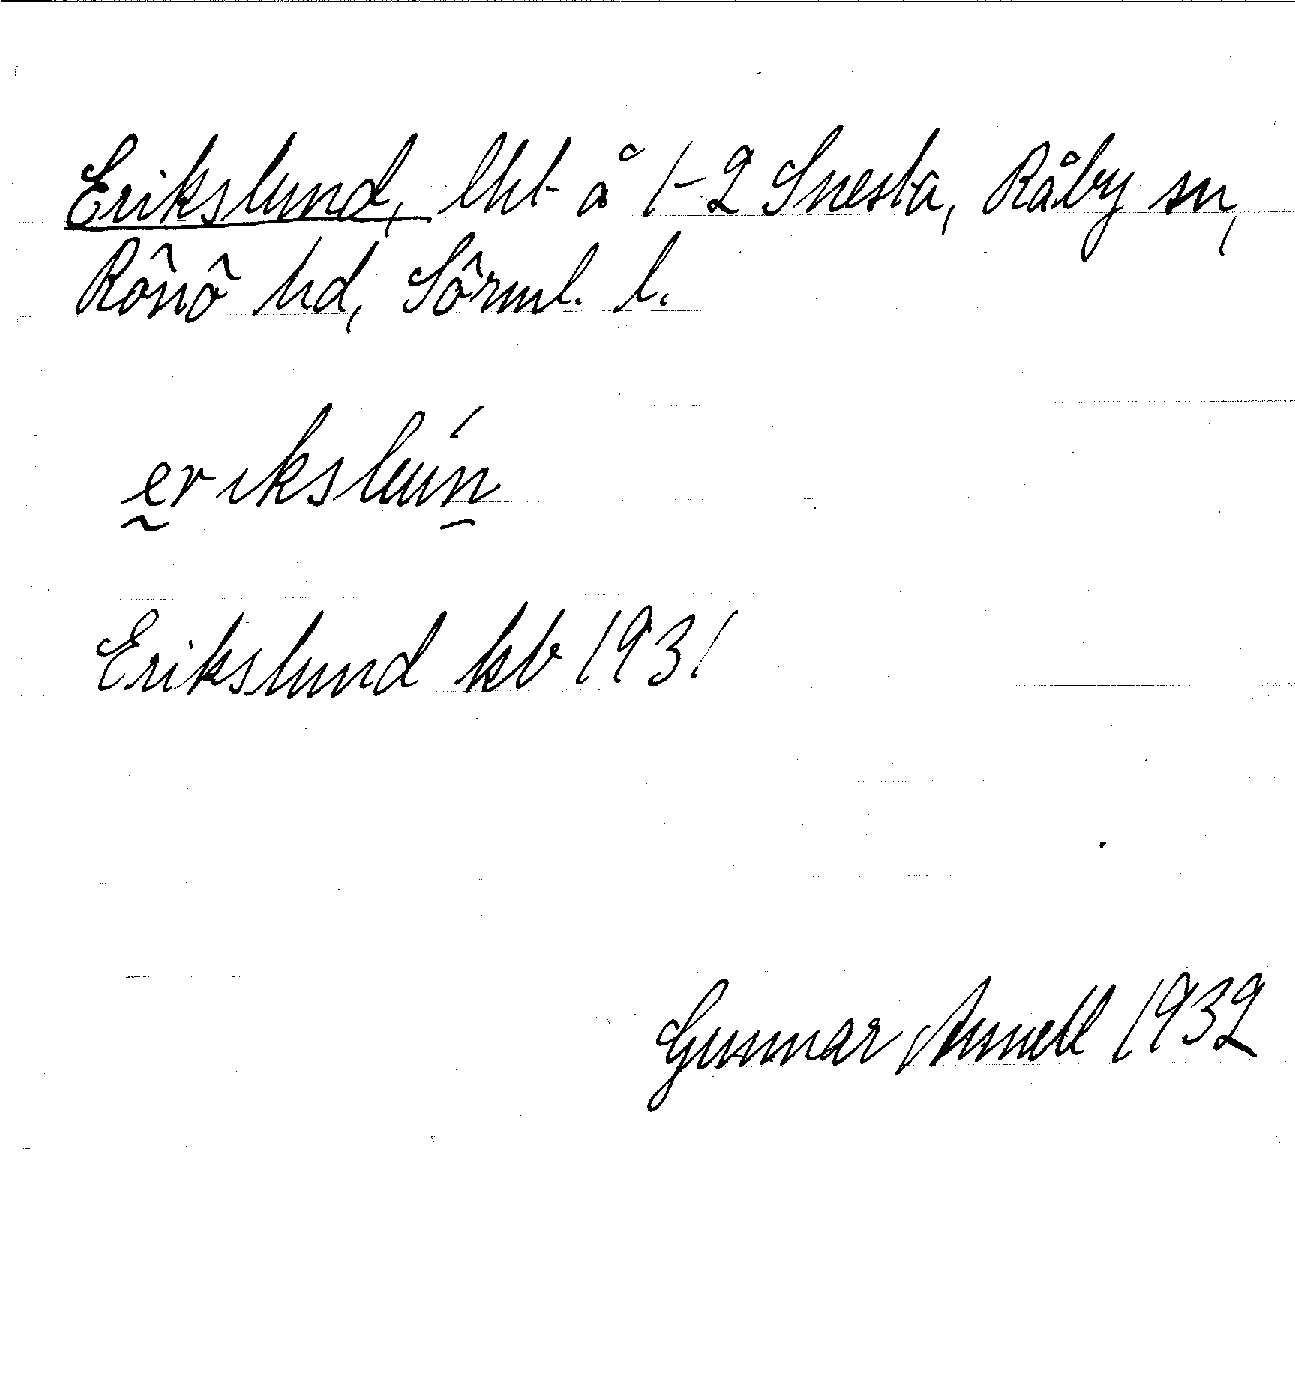 Erikslund, lht å 1-2 Snesta, Råby sn,
Rönö hd, Sörml. l.
erikslún
Erikslund kb 1931
Gunnar Annell 1932